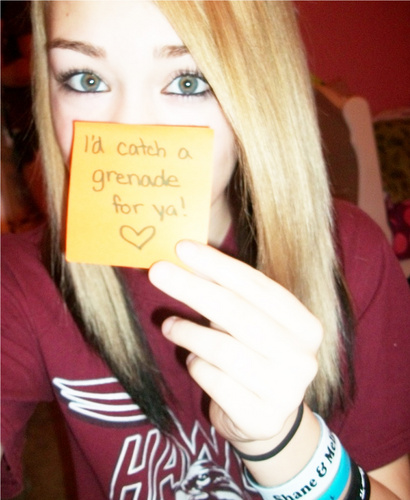 I'd catch a
grenade
for ya!
HAW
Shane & Me